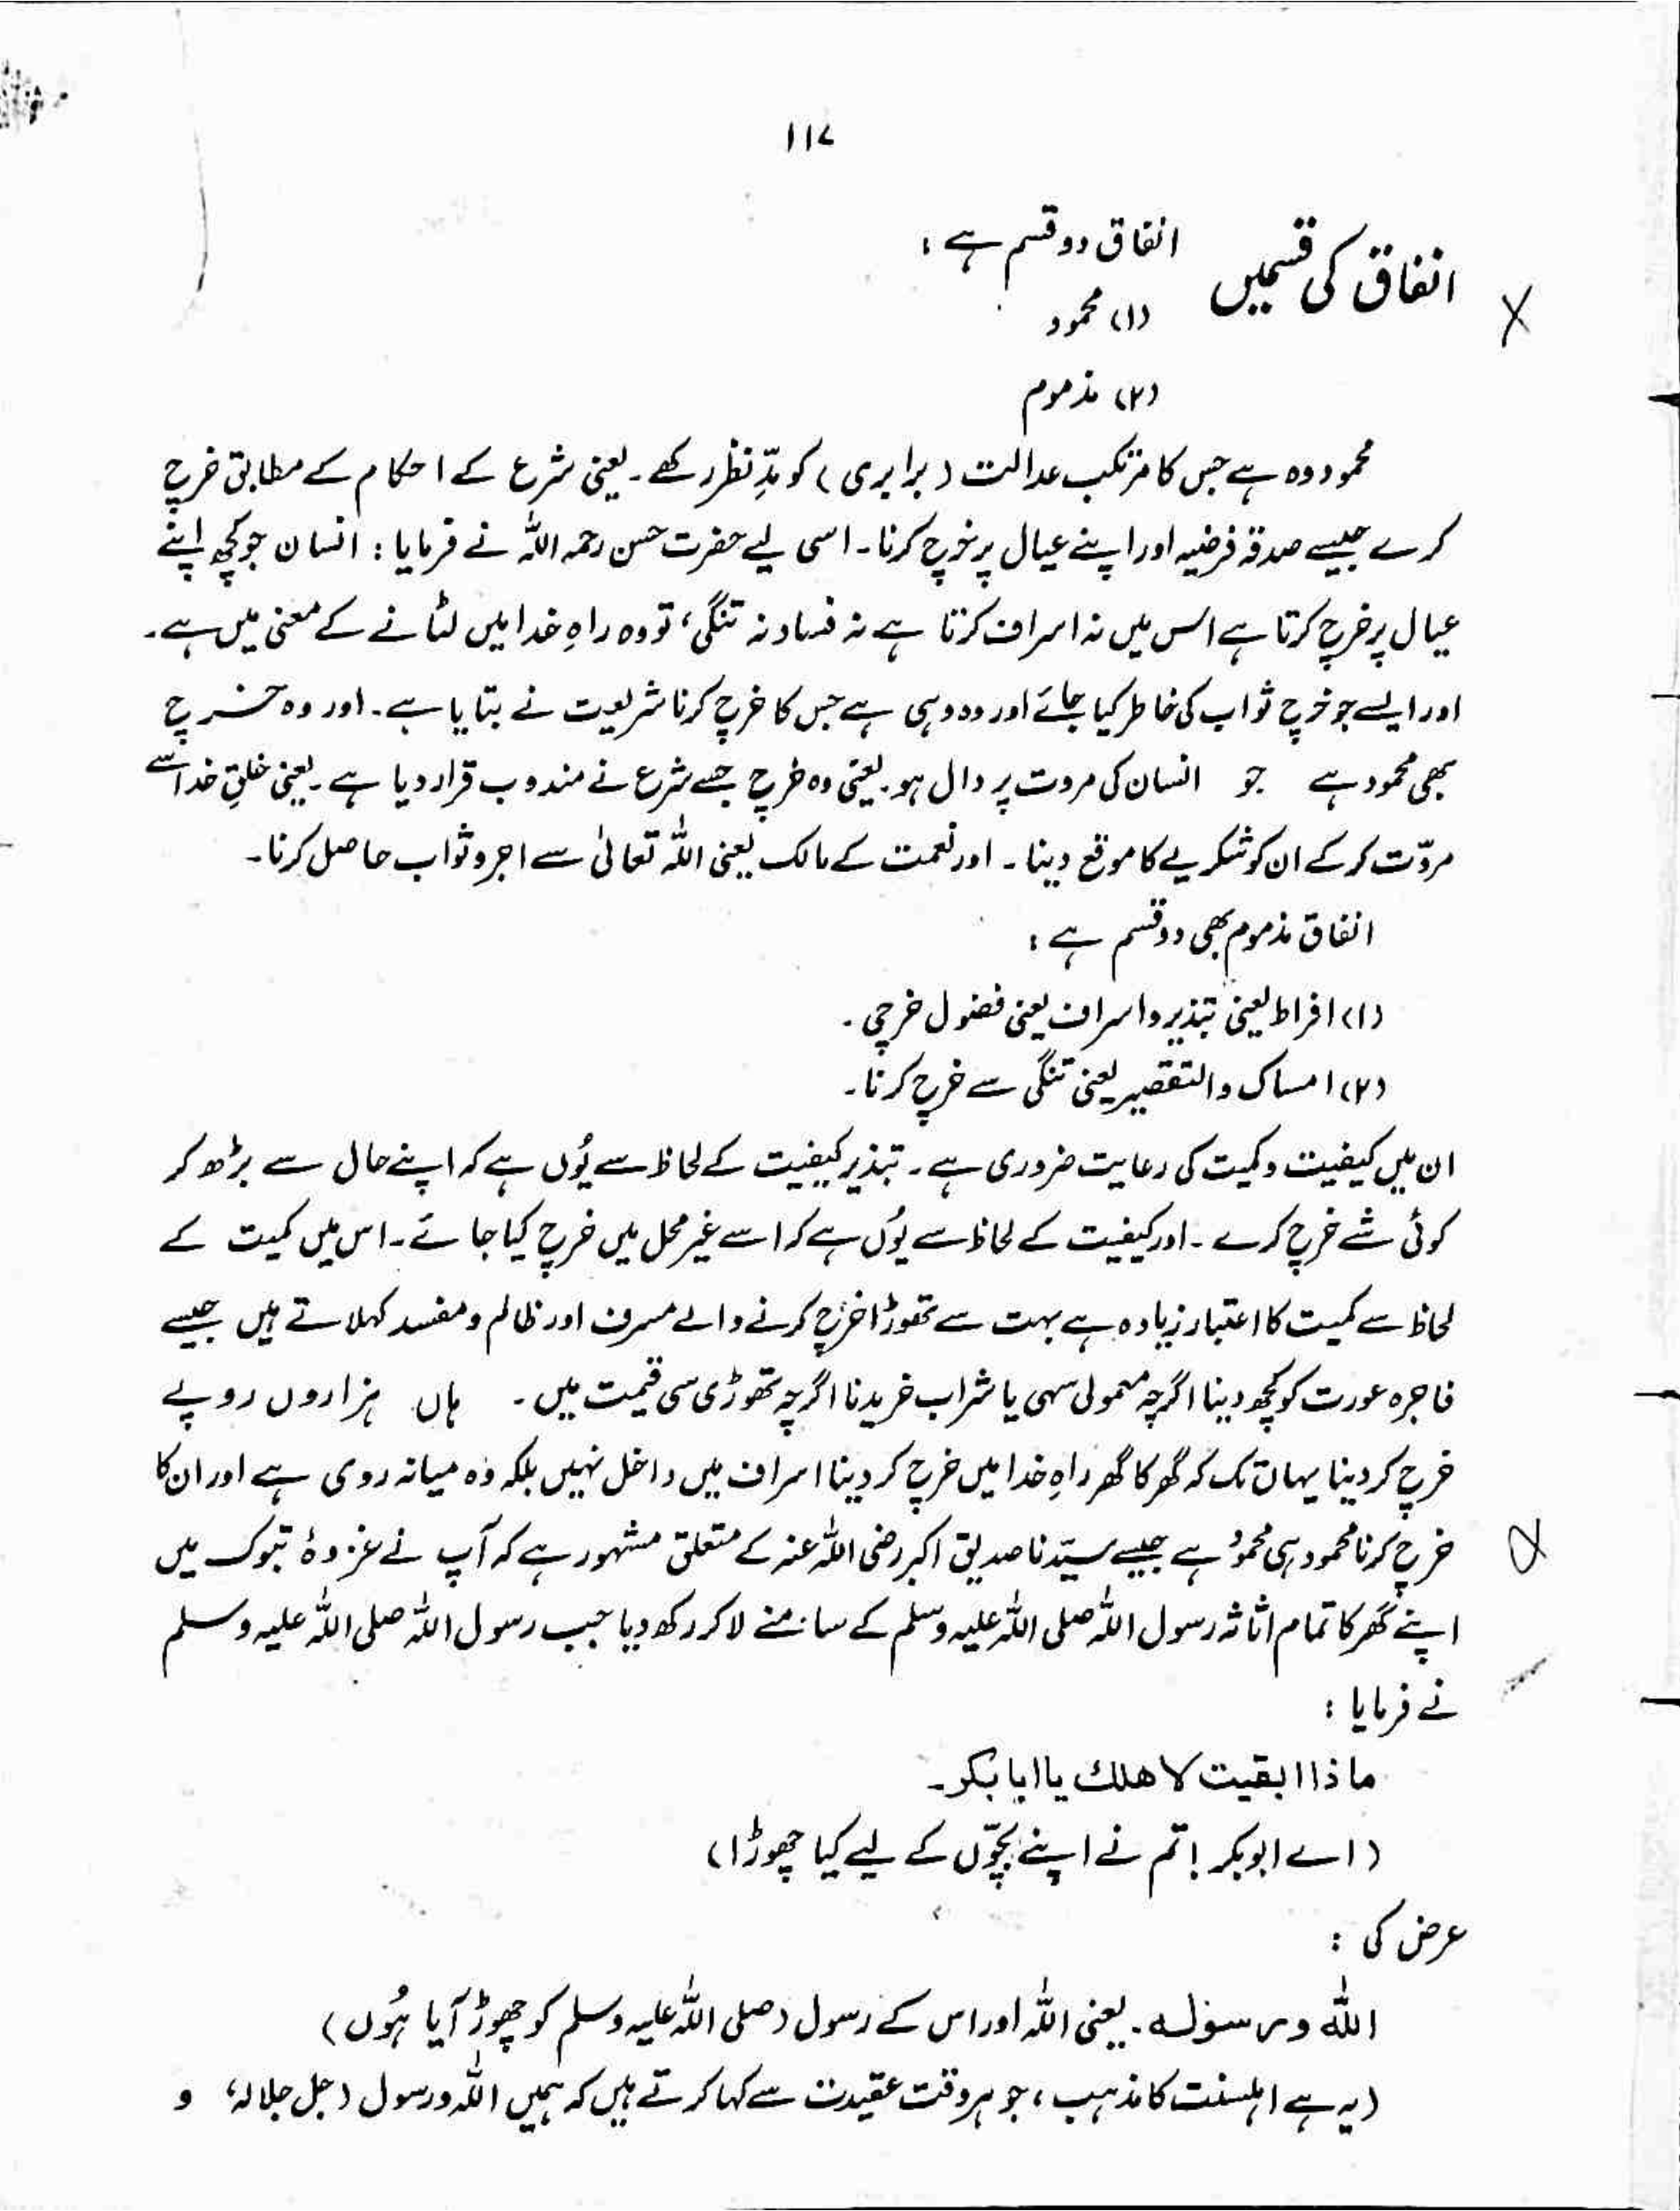 ۱۱۷
انفاق کی قسمیں
انفاق دو قسم ہے :
(۱) محمود
(۲) مذموم
محمود وہ ہے جس کا مرتکب عدالت (برابری) کو مدِّ نظر رکھے۔ یعنی شرع کے احکام کے مطابق خرچ
کرے جیسے صدقہ فرضیہ اور اپنے عیال پر خرچ کرنا۔ اسی لیے حضرت حسن رحمہ اللہ نے فرمایا : انسان جو کچھ اپنے
عیال پر خرچ کرتا ہے اس میں نہ اسراف کرتا ہے نہ فساد نہ تنگی، تو وہ راہِ خدا میں لٹانے کے معنی میں ہے۔
اور ایسے جو خرچ ثواب کی خاطر کیا جائے اور وہ وہی ہے جس کا خرچ کرنا شریعت نے بتایا ہے۔ اور وہ خرچ
بھی محمود ہے جو انسان کی مروت پر دال ہو۔ یعنی وہ خرچ جسے شرع نے مندوب قرار دیا ہے۔ یعنی خلقِ خدا سے
مروّت کر کے ان کو شکریے کا موقع دینا۔ اور نعمت کے مالک یعنی اللہ تعالیٰ سے اجر و ثواب حاصل کرنا۔
انفاق مذموم بھی دو قسم ہے :
(۱) افراط یعنی تبذیر و اسراف یعنی فضول خرچی۔
(۲) امساک والتقصیر یعنی تنگی سے خرچ کرنا۔
ان میں کیفیت و کمیت کی رعایت ضروری ہے۔ تبذیر کیفیت کے لحاظ سے یُوں ہے کہ اپنے حال سے بڑھ کر
کوئی شے خرچ کرے۔ اور کیفیت کے لحاظ سے یُوں ہے کہ اسے غیر محل میں خرچ کیا جائے۔ اس میں کمیت کے
لحاظ سے کمیت کا اعتبار زیادہ ہے بہت سے تھوڑا خرچ کرنے والے مسرف اور ظالم و مفسد کہلاتے ہیں جیسے
فاجرہ عورت کو کچھ دینا اگرچہ معمولی سہی یا شراب خریدنا اگرچہ تھوڑی سی قیمت میں۔ ہاں ہزاروں روپے
خرچ کر دینا یہاں تک کہ گھر کا گھر راہِ خدا میں خرچ کر دینا اسراف میں داخل نہیں بلکہ وہ میانہ روی ہے اور ان کا
خرچ کرنا محمود ہی محمود ہے جیسے سیّدنا صدیق اکبر رضی اللہ عنہ کے متعلق مشہور ہے کہ آپ نے غزوۂ تبوک میں
اپنے گھر کا تمام اثاثہ رسول اللہ صلی اللہ علیہ وسلم کے سامنے لا کر رکھ دیا جب رسول اللہ صلی اللہ علیہ وسلم
نے فرمایا :
ماذا ابقیت لاھلك یا ابا بکر۔
(اے ابوبکر! تم نے اپنے بچّوں کے لیے کیا چھوڑا)
عرض کی :
اللہ ورسوله۔ یعنی اللہ اور اس کے رسول (صلی اللہ علیہ وسلم کو چھوڑ آیا ہُوں)
(یہ ہے اہلسنت کا مذہب، جو ہر وقت عقیدت سے کہا کرتے ہیں کہ ہمیں اللہ و رسول (جل جلالہ، و